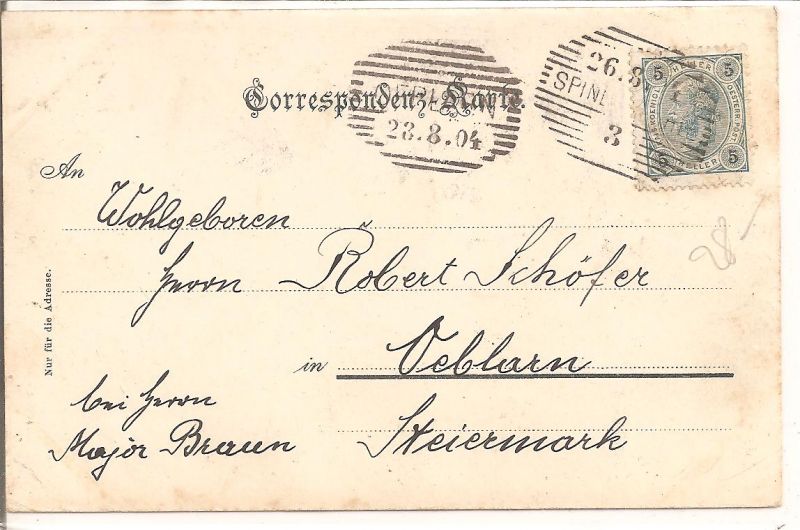 Correspondenz-Karte.
28.8.04
26.8
SPIN
3
5 HELLER 5
5 HELLER 5
An
Wohlgeboren
Herrn Robert Schöfer
in Oeblarn
bei Herrn
Major Braun
Steiermark
Nur für die Adresse.
28-